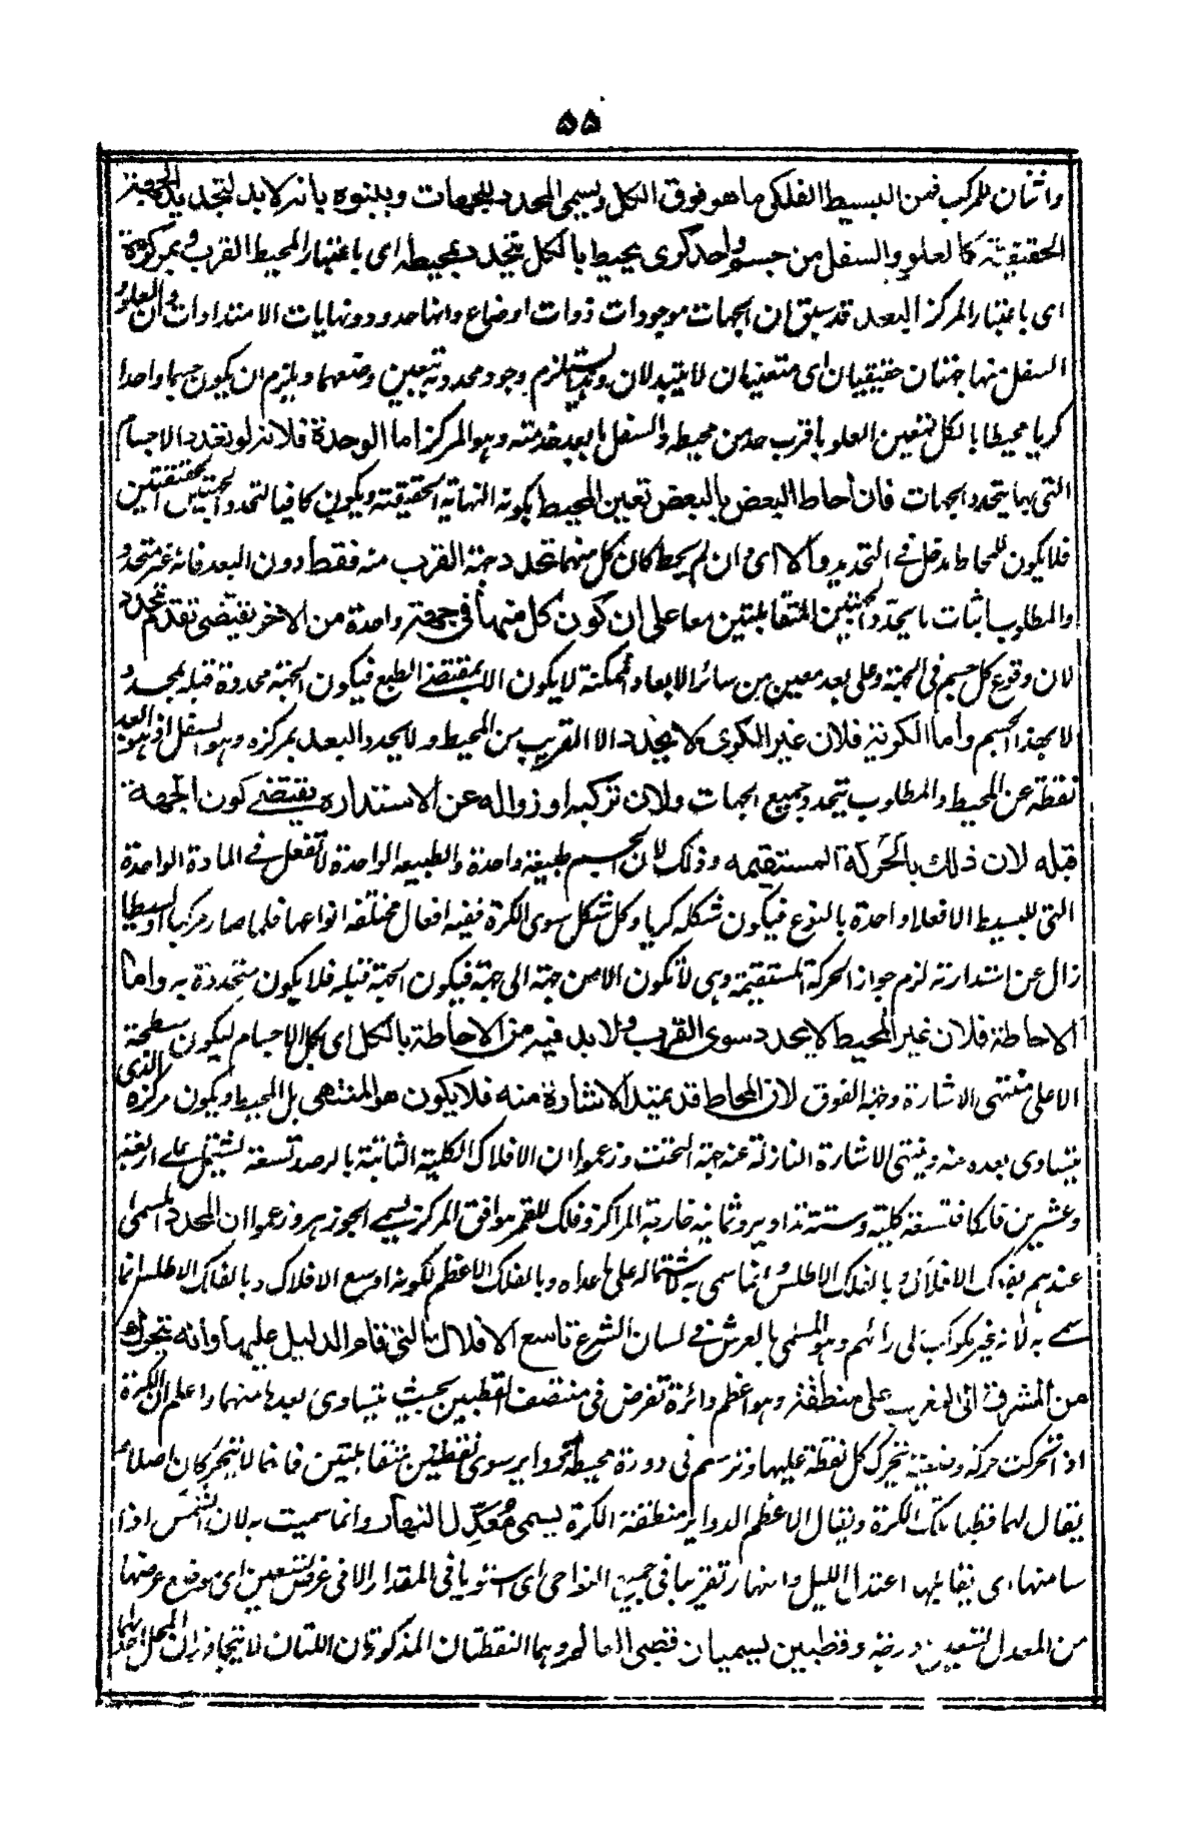 ۵۵
واثنان للمركب فمن البسيط الفلكي ما هو فوق الكل ويسمى المحدد للجهات وبينوه بانه لا بد لتحديد الجهة
الحقيقية كالعلو والسفل من جسم واحد كرى يحيط بالكل يتحدد بمحيطه اى باعتبار المحيط القرب وبمركزه
اى باعتبار المركز البعد قد سبق ان الجهات موجودات ذوات اوضاع وانها حدود ونهايات الامتدادات وان العلو و
السفل منها جهتان حقيقيتان اى متعينتان لا تتبدلان وهذا يستلزم وجود محدد به يتعين وضعهما ويلزم ان يكون جسما واحدا
كريا محيطا بالكل فتعين العلو باقرب حد من محيطه والسفل بابعد حد منه وهو المركز اما الوحدة فلانه لو تعدد الاجسام
التى بها يتحدد الجهات فان احاط البعض بالبعض تعين المحيط لكونه النهاية الحقيقية ويكون كافيا لتحدد الجهتين الحقيقيتين
فلا يكون للمحاط دخل فى التحديد والا اى وان لم يحط كان كل منهما تحدد جهة القرب منه فقط دون البعد فانه غير متحدد
والمطلوب اثبات ما يحدد الجهتين المتقابلتين معا على ان كون كل منهما فى جهة واحدة من الاخر يقتضى تقدم تحدد
لان وقوع كل جسم فى الجهة وعلى بعد معين من سائر الابعاد الممكنة لا يكون الا بمقتضى الطبع فيكون الجهة محدودة قبله بمحدد
لا بهذا الجسم واما الكرية فلان غير الكرى لا يتحدد الا القريب من المحيط ولا يحدد البعد بمركزه وهو السفل اذ هو ابعد
نقطة عن المحيط والمطلوب يتحدد جميع الجهات ولان تركبه او زواله عن الاستداره يقتضى كون الجهة
قبله لان ذلك بالحركة المستقيمه وذلك لان الجسم طبيعة واحدة والطبيعه الواحدة لا تفعل فى المادة الواحدة
التى للبسيط الا فعلا واحدة بالنوع فيكون شكله كريا وكل شكل سوى الكرة ففيه افعال مختلفه انواعها فلما صار مركبا او بسيطا
زال عن استدارته لزم جواز الحركة المستقيمة وهى لا تكون الا من جهة الى جهة فيكون الجهة قبله فلا يكون متحددة به واما
الاحاطة فلان غير المحيط لا يحدد سوى القرب ولا بد فيه من الاحاطة بالكل اى كل الاجسام ليكون سطحه
الاعلى منتهى الاشارة وجهة الفوق لان المحاط قد يمتد الاشارة منه فلا يكون هو المنتهى بل المحيط ويكون مركزه الذى
يتساوى بعده عنه وينتهى الاشارة النازلة عنه جهة التحت وزعموا ان الافلاك الكلية الثابتة بالرصد تسعة تشتمل على اربعة
وعشرين فلكا تسعة كلية وستة تداوير وثمانية خارجة المراكز وفلك للقمر موافق المركز يسمى الجوزهر وزعموا ان المحدد المسمى
عندهم بفلك الافلاك وبالفلك الاطلس وانما سمى به لاشتماله على ما عداه وبالفلك الاعظم لكونه اوسع الافلاك وبالفلك الاطلس انما
سمى به لانه غير مكوكب فى رائهم وهو المسمى بالعرش فى لسان الشرع تاسع الافلاك التى قام الدليل عليها وانه يتحرك
من المشرق الى المغرب على منطقة وهو اعظم دائرة تفرض فى منتصف القطبين بحيث يتساوى بعدها منهما واعلم ان الكرة
اذا تحركت حركة وضعية تحرك كل نقطة عليها وترسم فى دورة محيط دواير سوى نقطتين متقابلتين فانهما لا تتحركان اصلا
يقال لهما قطبا تلك الكرة ويقال لاعظم الدواير منطقة الكرة يسمى معدل النهار وانما سميت به لان الشمس اذا
سامتها اى تقابلها اعتدل الليل والنهار تقريبا فى جميع النواحى اى استويا فى المقدار الا فى عرض تسعين اى موضع عرضها
من المعدل تسعين درجة وقطبين يسميان قطبى العالم وهما النقطتان المذكورتان اللتان لا يتجاوزان المحل